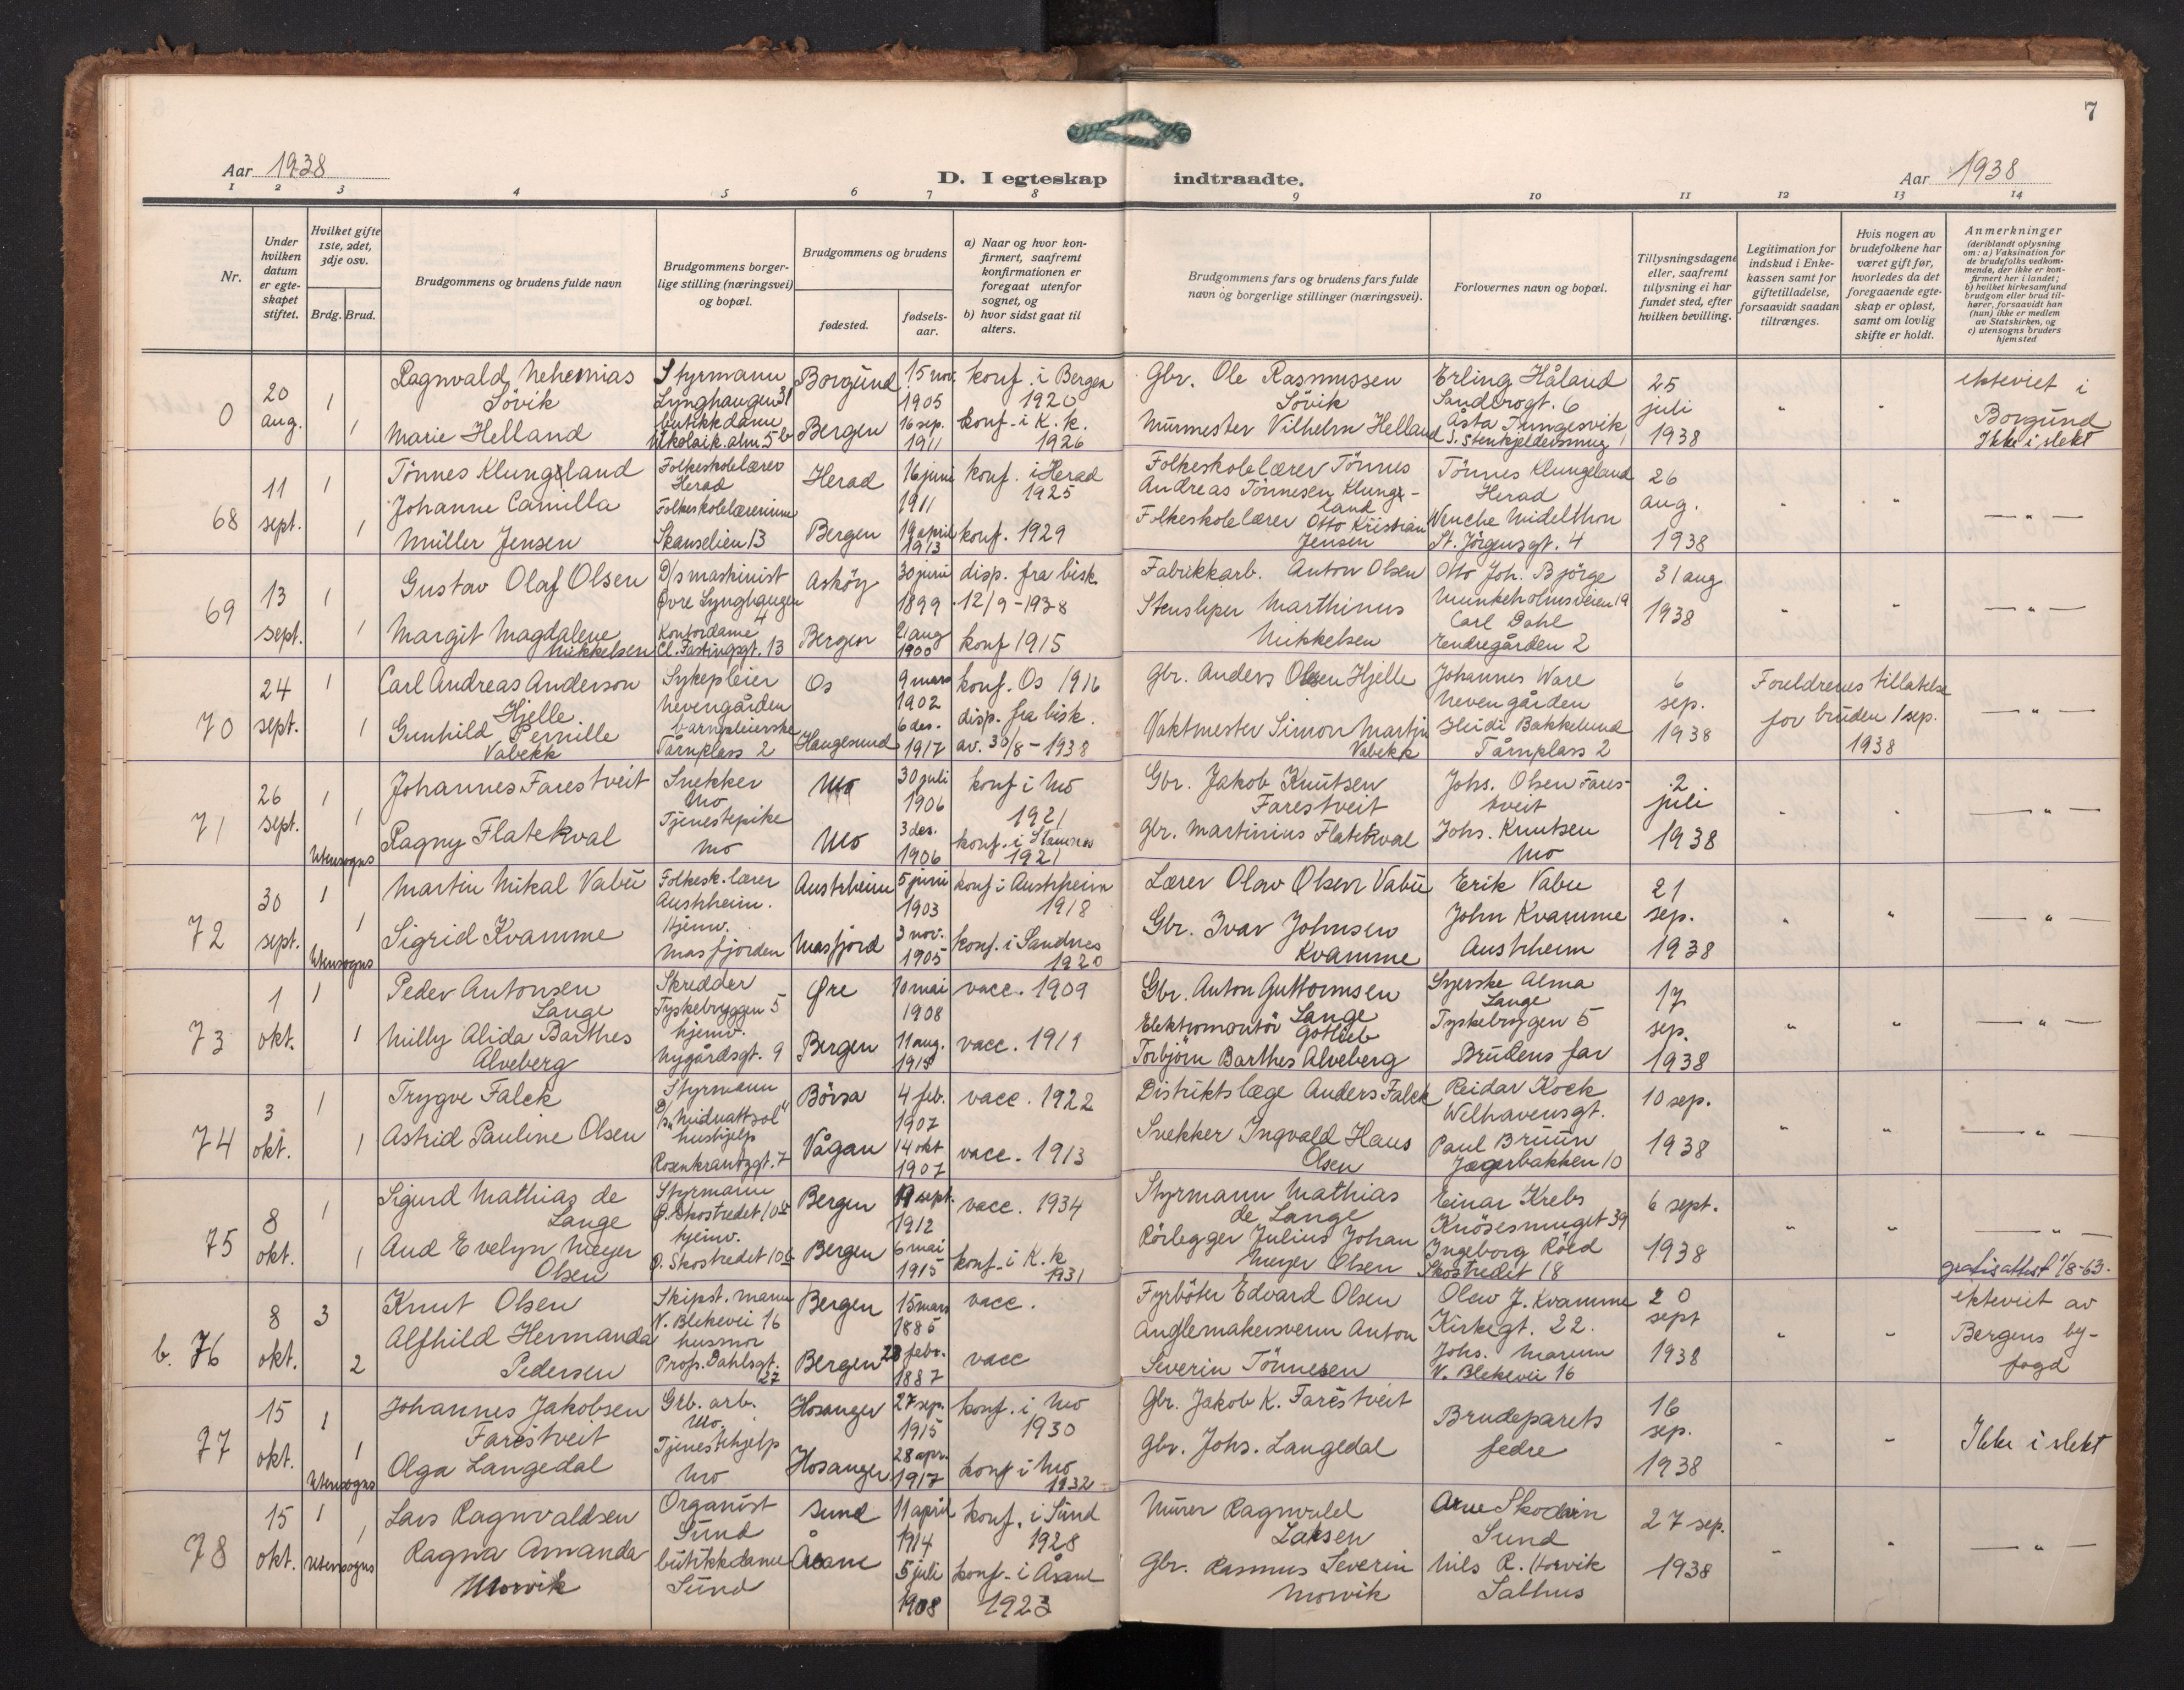 7
Aar 1938
D. I egteskap indtraadte.
Aar 1938
1 2 3 4 5 6 7 8 9 10 11 12 13 14
Nr.
Under hvilken datum er egteskapet stiftet.
Hvilket gifte 1ste, 2det, 3dje osv.
Brdg. Brud.
Brudgommens og brudens fulde navn
Brudgommens borgerlige stilling (næringsvei) og bopæl.
Brudgommens og brudens
fødested.
fødselsaar.
a) Naar og hvor konfirmert, saafremt konfirmationen er foregaat utenfor sognet, og
b) hvor sidst gaat til alters.
Brudgommens fars og brudens fars fulde navn og borgerlige stillinger (næringsvei).
Forlovernes navn og bopæl.
Tillysningsdagene eller, saafremt tillysning ei har fundet sted, efter hvilken bevilling.
Legitimation for indskud i Enkekassen samt for giftetilladelse, forsaavidt saadan tiltrænges.
Hvis nogen av brudefolkene har været gift før, hvorledes da det foregaaende egteskap er opløst, samt om lovlig skifte er holdt.
Anmerkninger
(deriblandt oplysning om: a) Vaksination for de brudefolks vedkommende, der ikke er konfirmert her i landet; b) hvilket kirkesamfund brudgom eller brud tilhører, forsaavidt han (hun) ikke er medlem av Statskirken, og c) utensogns bruders hjemsted
0
20 aug.
1
1
Ragnvald Nehemias Søvik
Styrmann
Lynghaugen 31
Borgund
15 nov. 1905
konf. i Bergen 1920
Gbr. Ole Rasmussen Søvik
Erling Håland
Sandbrogt. 6
25 juli 1938
ekteviet i Borgund
Ikke i slekt
Marie Helland
butikkdame
Nikolaik.alm. 5b
Bergen
16 sep. 1911
konf. i K. k. 1926
Murmester Vilhelm Helland
Åsta Tungesvik
S. Stenkjeldersmug 1
68
11 sept.
1
1
Tönnes Klungeland
Folkeskolelærer
Herad
Herad
16 juni 1911
konf. i Herad 1925
Folkeskolelærer Tönnes Andreas Tönnesen Klungeland
Tönnes Klungeland
Herad
26 aug. 1938
Johanne Camilla Müller Jensen
Folkeskolelærerinne
Skanselien 13
Bergen
19 april 1913
konf. 1929
Folkeskolelærer Otto Kristian Jensen
Wenche Midelthon
St. Jörgensgt. 4
— " —
69
13 sept.
1
1
Gustav Olaf Olsen
D/s maskinist
Övre Lynghaugen 4
Asköy
30 juni 1899
disp. fra bisk. 12/9-1938
Fabrikkarb. Anton Olsen
Otto Joh. Bjørge
Munkeholmsveien 19
31 aug 1938
Margit Magdalene Mikkelsen
Kontordame
Cl. Fastingsgt. 13
Bergen
21 aug 1900
konf 1915
Stensliper Marthinus Mikkelsen
Carl Dahl
Endregården 2
— " —
70
24 sept.
1
1
Carl Andreas Anderson Hjelle
Sykepleier
Nevengården
Os
9 mars 1902
konf. Os 1916
Gbr. Anders Olsen Hjelle
Johannes Ware
Nevengården
6 sep. 1938
Foreldrenes tillatelse for bruden 1 sep. 1938
Gunhild Pernille Vabekk
barnepleierske
Tårnplass 2
Haugesund
6 des. 1917
disp. fra bisk. av. 30/8-1938
Vaktmester Simon Martin Vabekk
Heidi Bakkelund
Tårnplass 2
— " —
71
26 sept.
1
1
Utensogns
Johannes Farestveit
Snekker
Mo
Mo
30 juli 1906
konf i Mo 1921
Gbr. Jakob Knutsen Farestveit
Johs. Olsen Farestveit
2 juli 1938
Ragny Flatekval
Tjenestepike
Mo
Mo
3 des. 1906
konf. i Stamnes 1921
Gbr. Martinius Flatekval
Johs. Knutsen
Mo
— " —
72
30 sept.
1
1
Utensogns
Martin Mikal Vabü
Folkesk.lærer
Austrheim.
Austrheim
5 juni 1903
konf i Austrheim 1918
Lærer Olav Olsen Vabü
Erik Vabu
21 sep. 1938
Sigrid Kvamme
Hjemv.
Masfjorden
Masfjord
3 nov. 1905
konf. i Sandnes 1920
Gbr. Ivar Johnsen Kvamme
John Kvamme
Austrheim
— " —
73
1 okt.
1
1
Peder Antonsen Lange
Skredder
Tyskebryggen 5
Øre
10 mai 1908
vacc. 1909
Gbr. Anton Guttormsen Lange
Syerske Alma Lange
Tyskebryggen 5
17 sep. 1938
Milly Alida Barthes Alveberg
hjemv.
Nygårdsgt. 9
Bergen
11 aug. 1915
vacc. 1919
Elektromontör Gotlieb Torbjörn Barthes Alveberg
Brudens far
— " —
74
3 okt.
1
1
Trygve Falck
Styrmann
D/s. "Midnattsol"
Börsa
4 feb. 1907
vacc. 1922
Distriktslæge Anders Falck
Reidar Kock
Welhavensgt.
10 sep. 1938
Astrid Pauline Olsen
hushjelp
Rosenkrantzgt. 7
Vågan
14 okt 1907
vacc. 1913
Snekker Ingvald Hans Olsen
Paul Bruun
Jægerbakken 10
— " —
75
8 okt.
1
1
Sigurd Mathias de Lange
Styrmann
Ø. Skostredet 10b
Bergen
19 sept. 1912
vacc. 1934
Styrmann Mathias de Lange
Einar Krebs
Knösesmuget 39
6 sept. 1938
Aud Evelyn Meyer Olsen
hjemv.
Ø. Skostredet 10b
Bergen
6 mai 1915
konf. i K. k 1931
Rörlegger Julius Johan Meyer Olsen
Ingeborg Röed
Skostredet 18
— " —
gratisattest 1/8-63.
b. 76
8 okt.
3
2
Knut Olsen
Skipst.mann
N. Blekevei 16
Bergen
15 mars 1885
vacc.
Fyrböter Edvard Olsen
Olav J. Kvamme
Kirkegt. 22.
20 sept 1938
ekteviet av Bergens byfogd
Alfhild Hermanda Pedersen
husmor
Prof. Dahlsgt. 27
Bergen
28 febr. 1887
vacc
Anglemakersvenn Anton Severin Tönnesen
Johs. Marum
N. Blekevei 16
77
15 okt.
1
1
Utensogns
Johannes Jakobsen Farestveit
Grb. arb.
Mo.
Hosanger
27 sep. 1915
konf. i Mo 1930
Gbr. Jakob K. Farestveit
Brudeparets fedre
16 sep. 1938
Ikke i slekt
Olga Langedal
Tjenestehjelp
Mo
Hosanger
28 apr. 1917
konf i Mo 1932
Gbr. Johs. Langedal
78
15 okt.
1
1
Utensogns
Lars Ragnvaldsen
Organist
Sund
Sund
11 april 1914
konf. i Sund 1928
Murer Ragnvald Larsen
Arne Skodvin
Sund
27 sep. 1938
Ragna Amanda Morvik
butikkdame
Sund
Åsane
5 juli 1908
konf. i Åsane 1923
Gbr. Rasmus Severin Morvik
Nils R. Horvik
Salhus
— " —